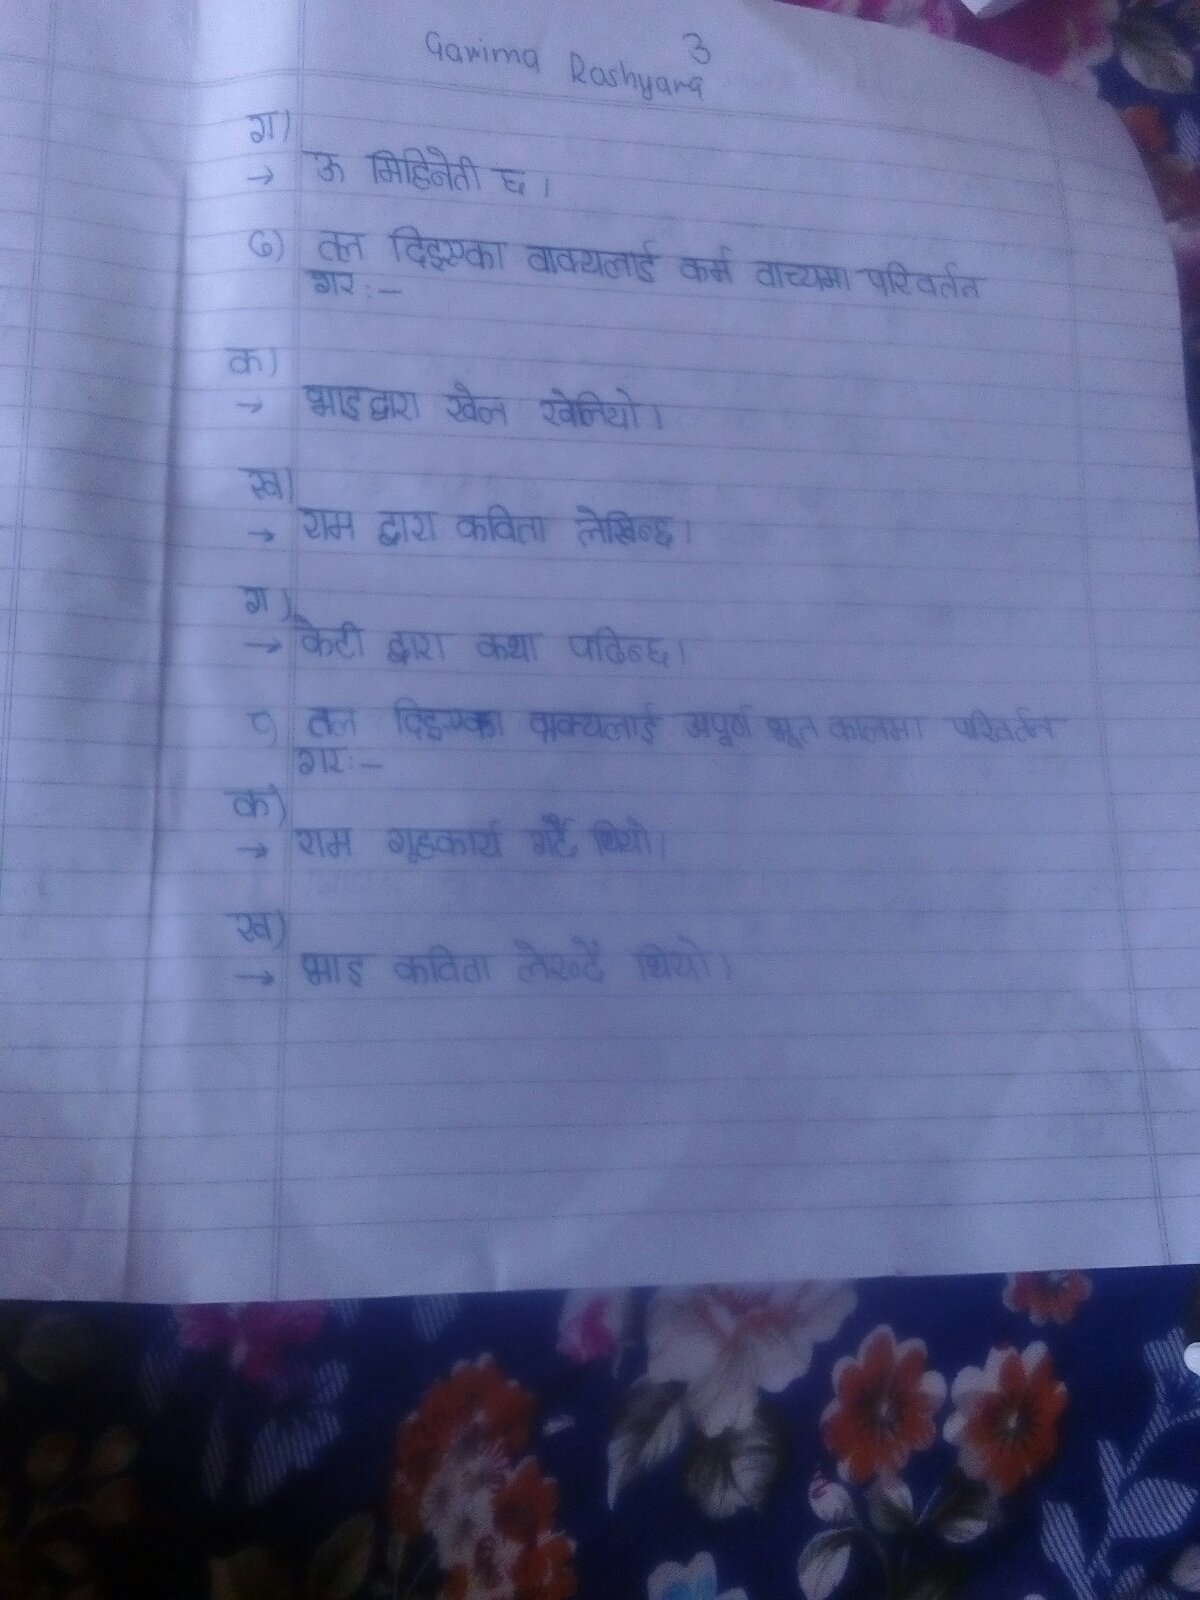 3
Garima Roshyara
ग)
→ ऊ मिहिनेती छ।
७) तल दिइएका वाक्यलाई कर्म वाच्यमा परिवर्तन
गर:-
क)
→ भाइद्वारा खेल खेलियो।
ख)
→ राम द्वारा कविता लेखिन्छ।
ग)
→ केटी द्वारा कथा पढिन्छ।
८) तल दिइएका वाक्यलाई अपूर्ण भूत कालमा परिवर्तन
गर:-
क)
→ राम गृहकार्य गर्दै थियो।
ख)
→ भाइ कविता लेख्दै थियो।